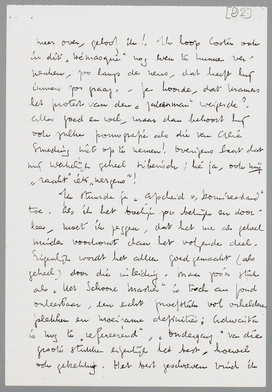 [92]
meer over, geloof ik! - Ik hoop Cortès ook
in dit "Démasqué" nog even te kunnen ver-
werken, zo langs de neus, dat heeft hij
immers zoo graag. - Je hoorde, dat Kramers
het protest van den "jaloerschen" weigerde?
Alles goed en wel, maar dan behoort hij
ook zulke pornografie als die van
niet op te nemen! Overigens laat dat
mij werkelijk geheel Siberisch; hè ja, ook mij
"raakt" iets "nergens"!
Ik stuurde je "Afscheid v. Domineesland"
toe. Als ik het boekje zoo bekijk en door-
lees, moet ik zeggen, dat het me als geheel
minder voorkomt dan het volgende deel.
Eigenlijk wordt het alleen goedgemaakt (als
geheel) door die inleiding. Maar zoo'n stuk
als "Het Schoone Masker" is toch au fond
onleesbaar, een echt proefstuk vol onheldere
plekken en moeizame definities;
is mij te "refereerend", "Ondergang" van die
groote stukken eigenlijk het best, hoewel
ook gebrekkig. Het best geschreven vind ik